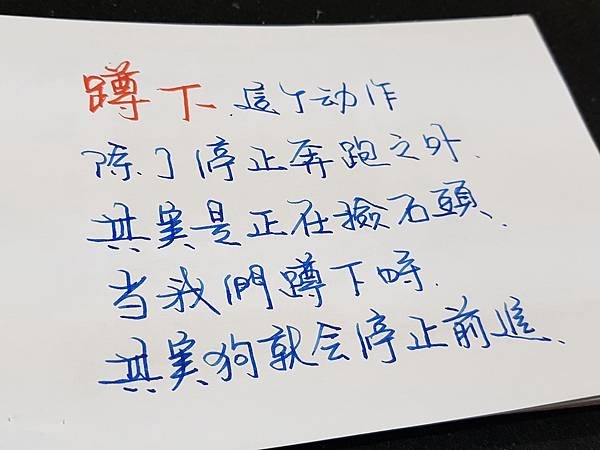 蹲下.這个动作
除了停止奔跑之外.
其実是正在撿石頭、
当我們蹲下時.
其実狗就会停止前進、